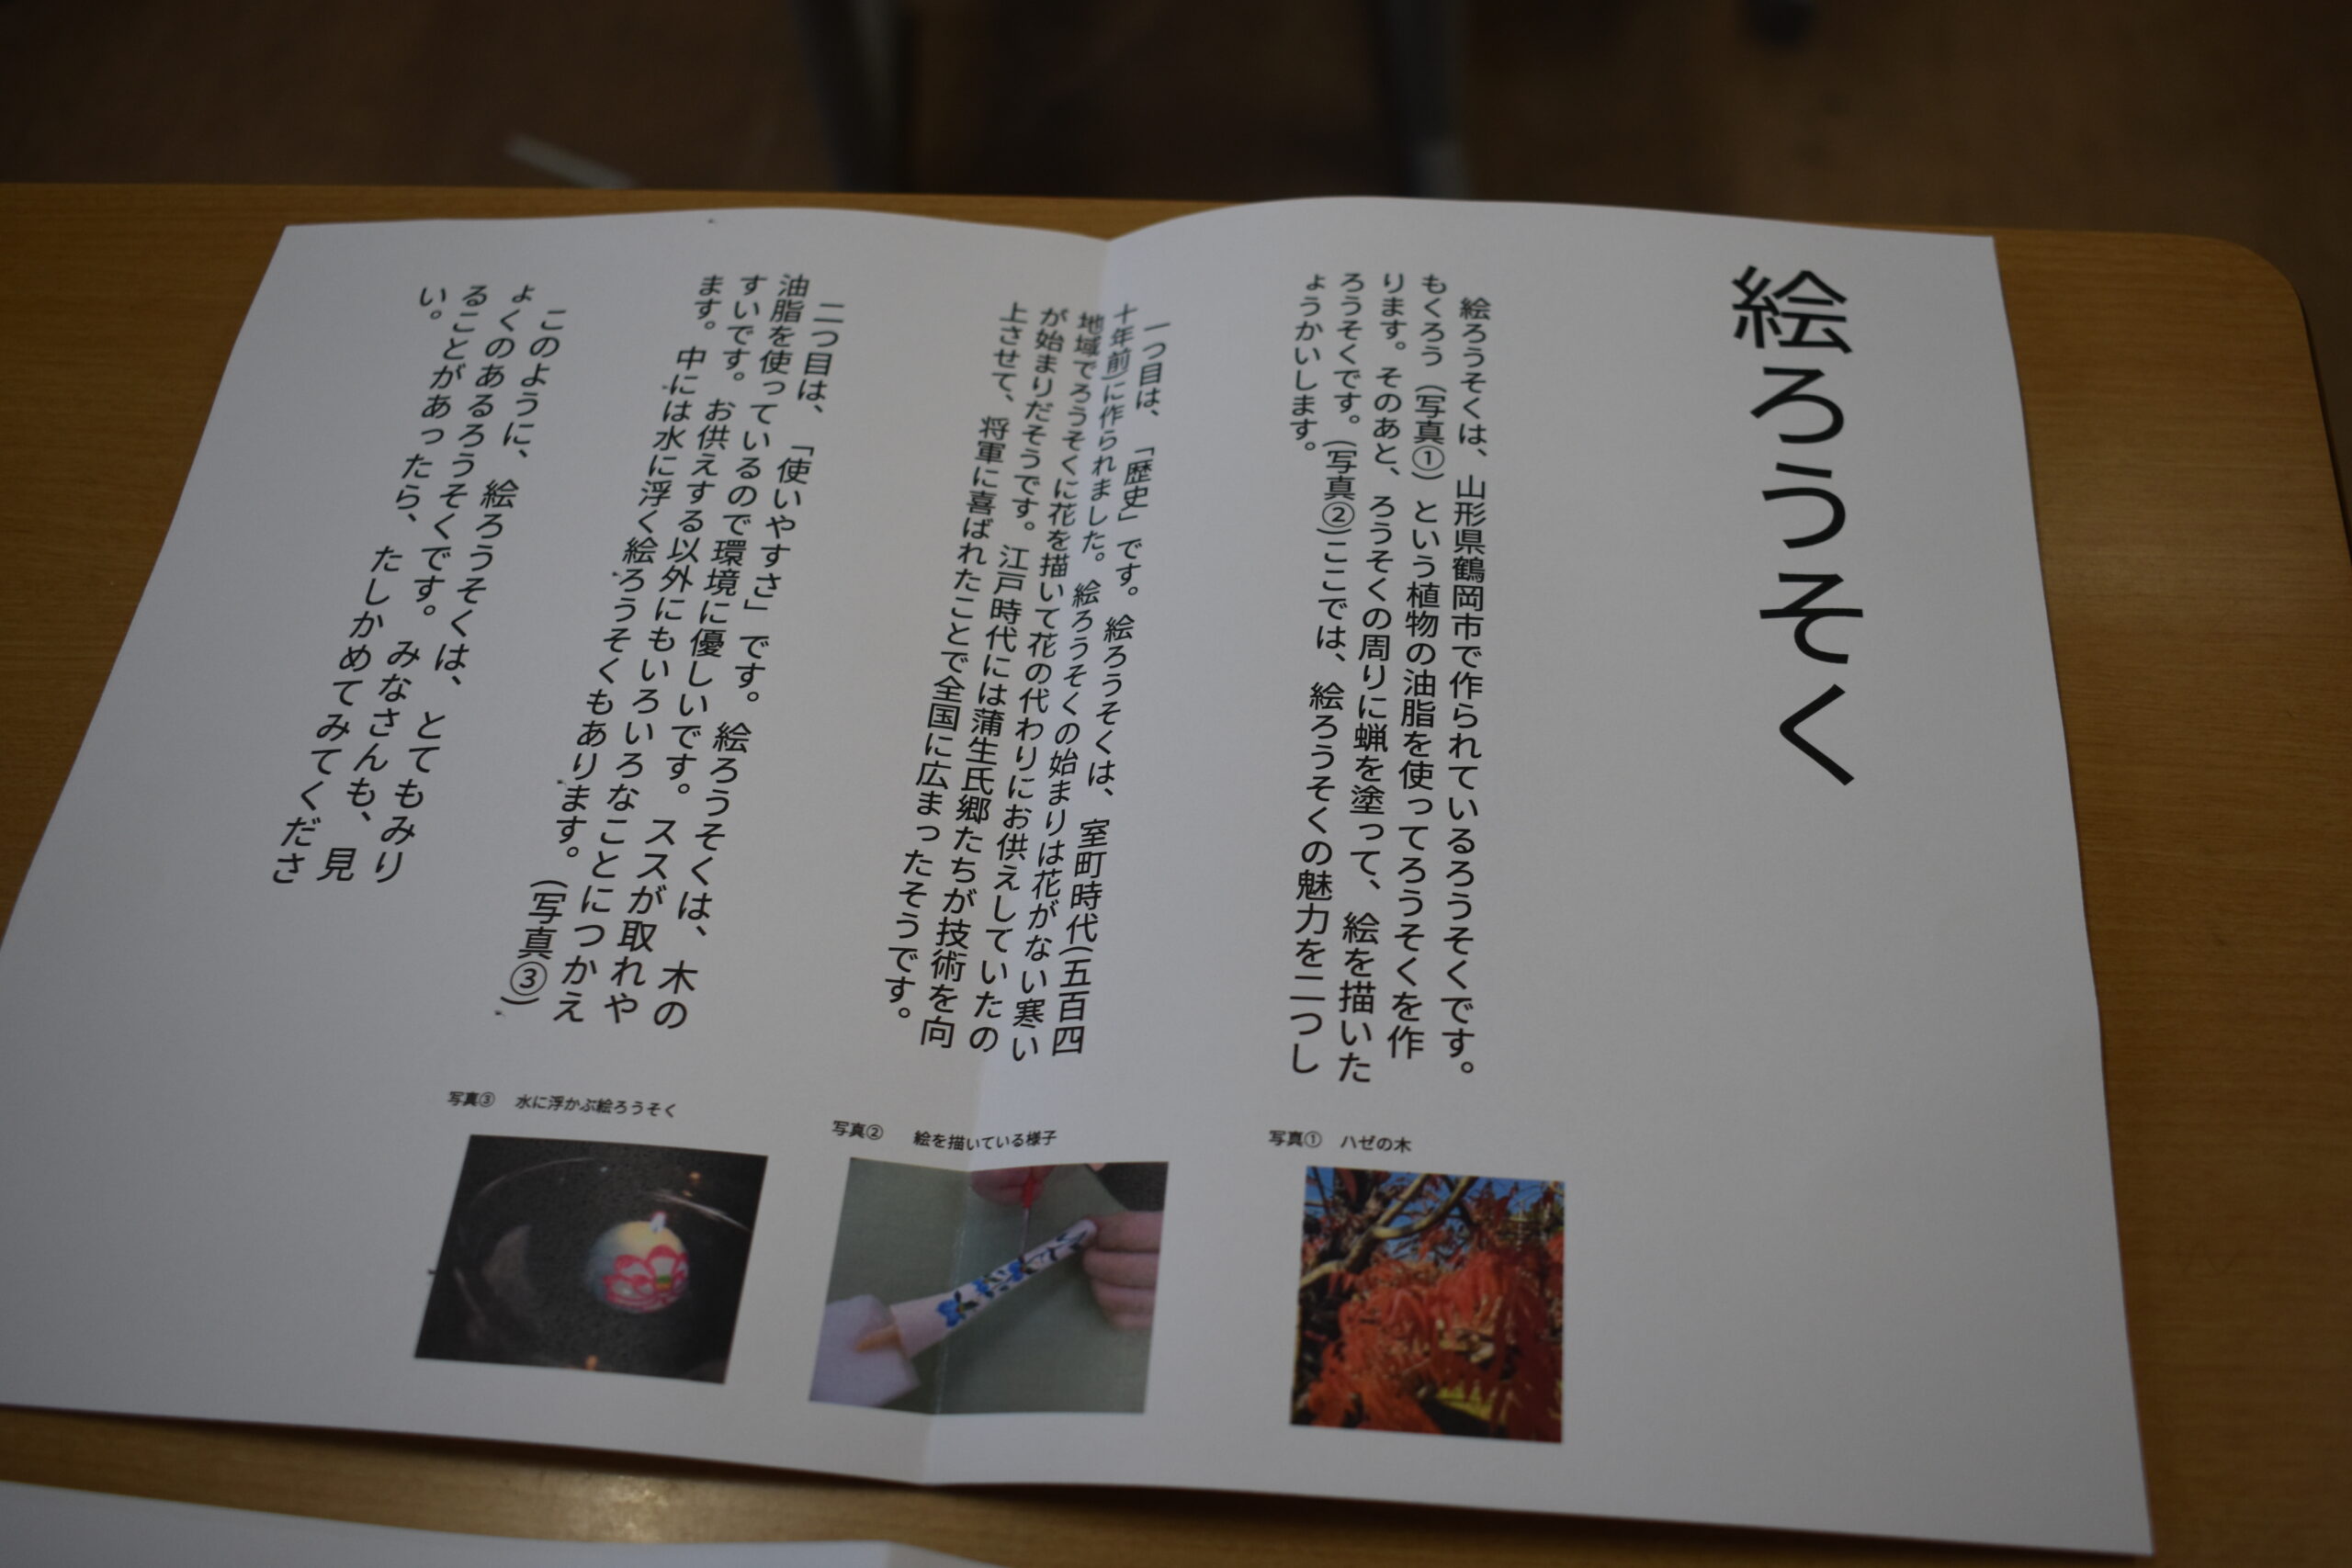 絵ろうそく
絵ろうそくは、山形県鶴岡市で作られているろうそくです。
もくろう（写真①）という植物の油脂を使ってろうそくを作
ります。そのあと、ろうそくの周りに蝋を塗って、絵を描いた
ろうそくです。（写真②）ここでは、絵ろうそくの魅力を二つし
ょうかいします。
一つ目は、「歴史」です。絵ろうそくは、室町時代（五百四
十年前）に作られました。絵ろうそくの始まりは花がない寒い
地域でろうそくに花を描いて花の代わりにお供えしていたの
が始まりだそうです。江戸時代には蒲生氏郷たちが技術を向
上させて、将軍に喜ばれたことで全国に広まったそうです。
二つ目は、「使いやすさ」です。絵ろうそくは、木の
油脂を使っているので環境に優しいです。ススが取れや
すいです。お供えする以外にもいろいろなことにつかえ
ます。中には水に浮く絵ろうそくもあります。（写真③）
このように、絵ろうそくは、とてもみり
ょくのあるろうそくです。みなさんも、見
ることがあったら、たしかめてみてくださ
い。
写真① ハゼの木
写真② 絵を描いている様子
写真③ 水に浮かぶ絵ろうそく